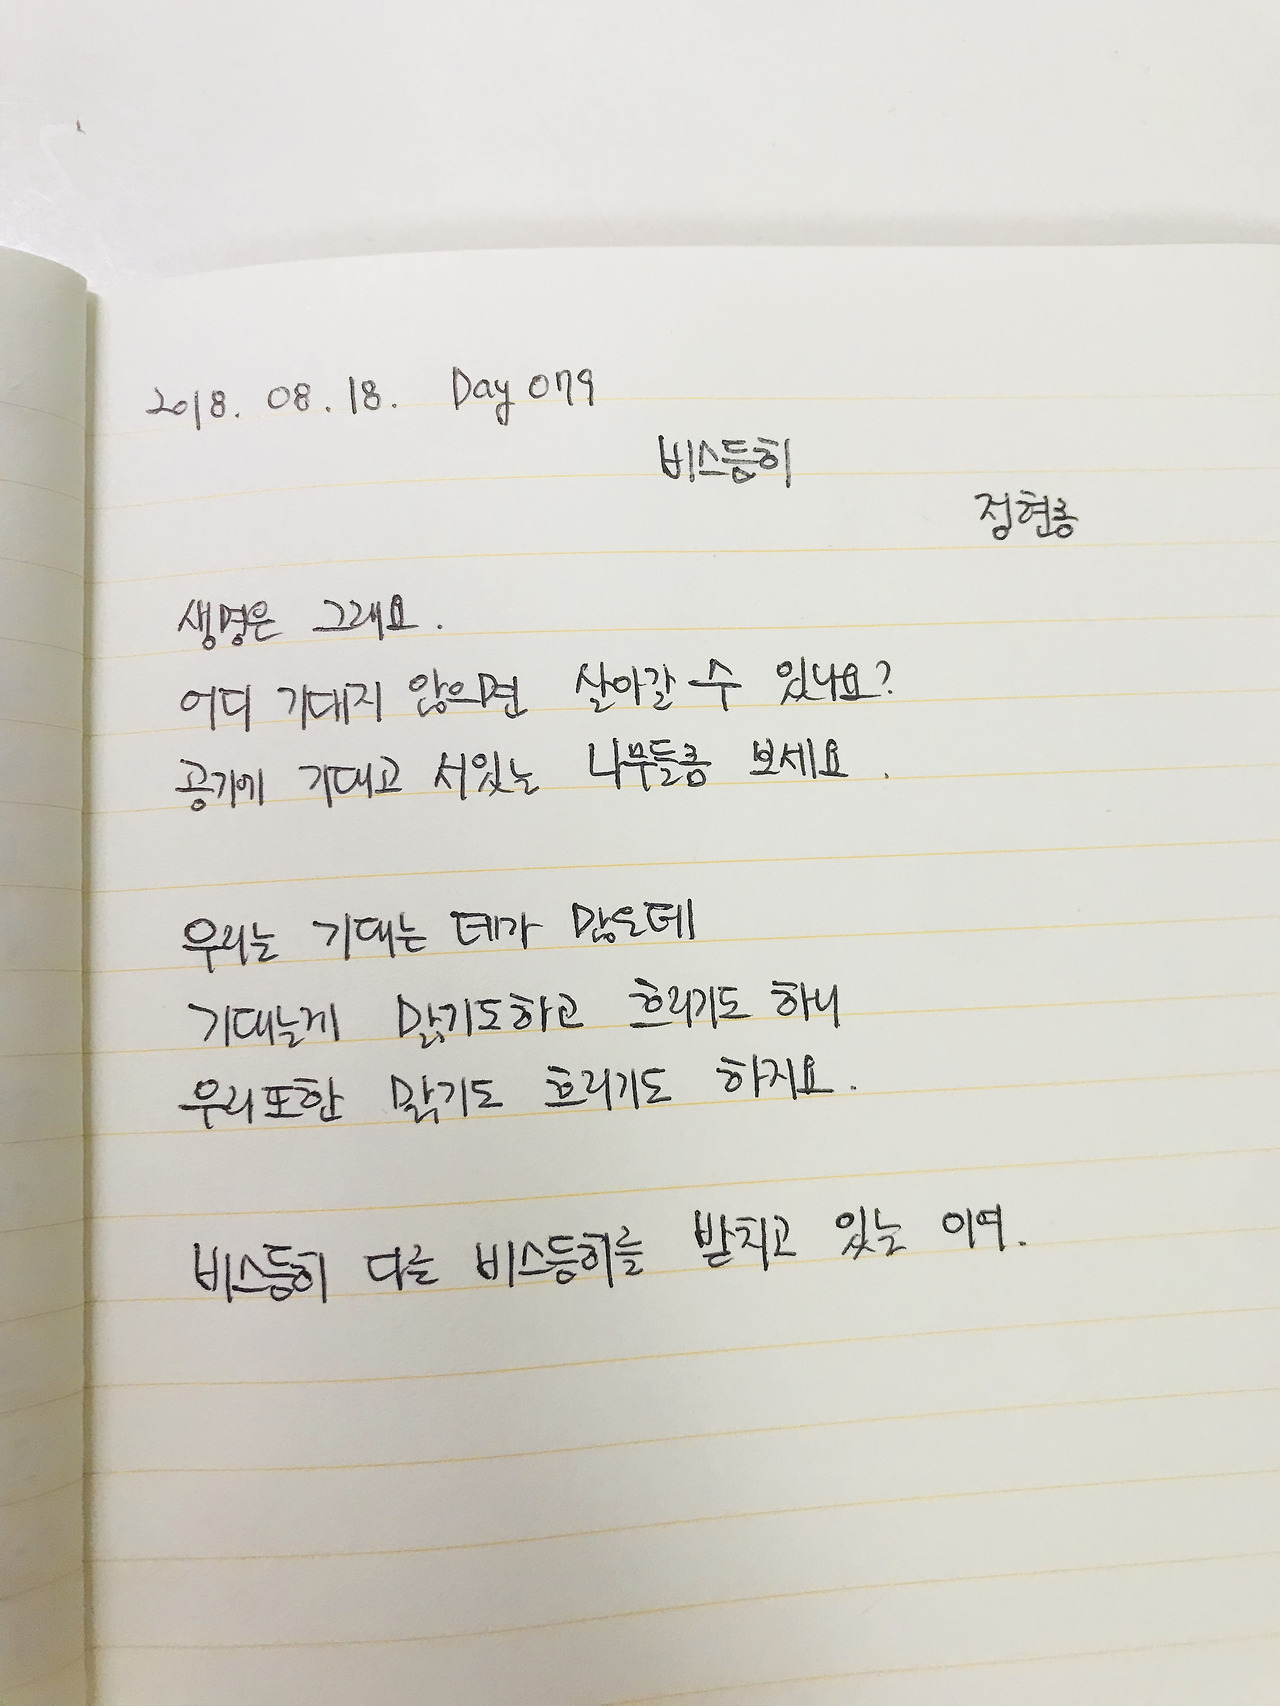 2018. 08. 18. Day 079
비스듬히
정현종
생명은 그래요.
어디 기대지 않으면 살아갈 수 있나요?
공기에 기대고 서있는 나무들좀 보세요.
우리는 기대는 데가 많은데
기대는게 맑기도하고 흐리기도 하니
우리또한 맑기도 흐리기도 하지요.
비스듬히 다른 비스듬히를 받치고 있는 이여.